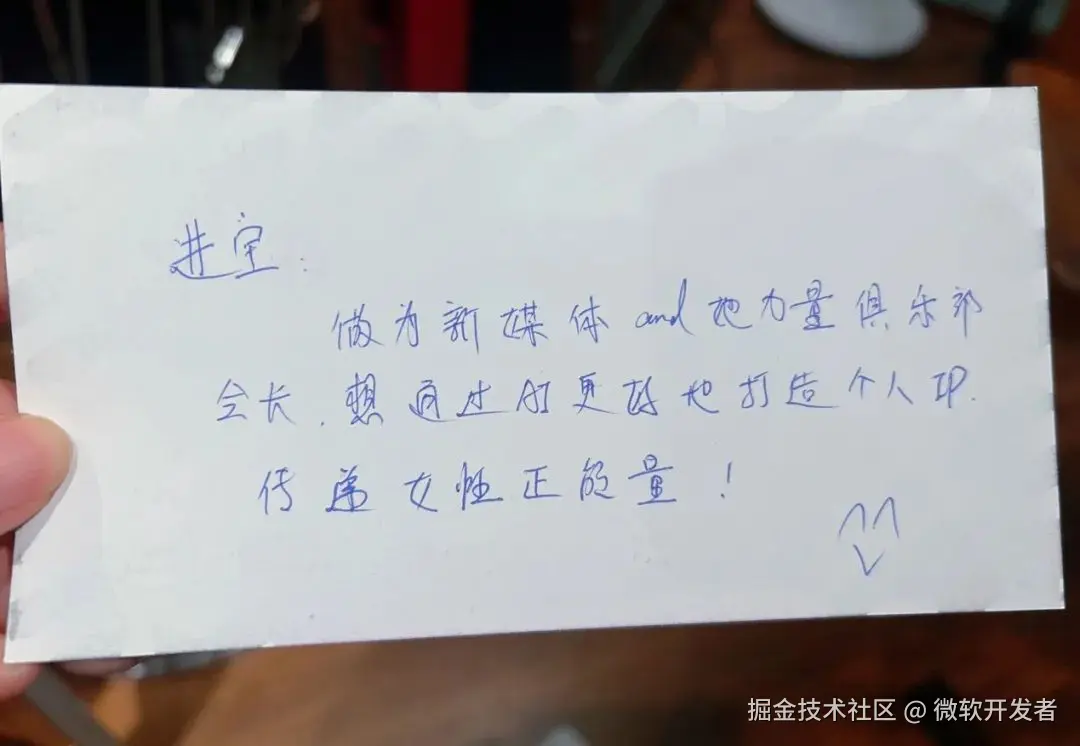 进宝:
做为新媒体and她力量俱乐部
会长,想通过AI更好地打造个人IP.
传递女性正能量!
掘金技术社区 @ 微软开发者